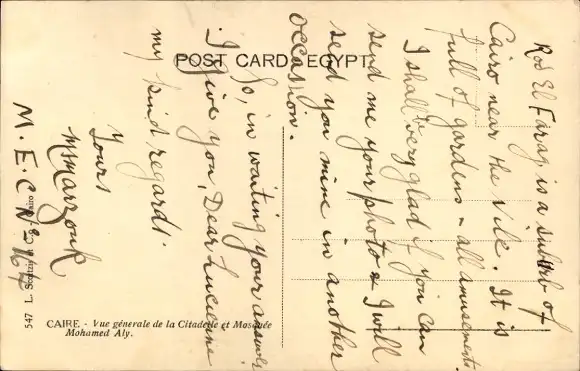 POST CARD EGYPT
Rod El Farag is a suburb of
Cairo near the Nile. It is
full of gardens - all amusements.
I shall be very glad if you can
send me your photo & I will
send you mine in another
occasion.
So, in waiting your answer
I give you, Dear Lucienne
my kind regards.
Yours
M Marzouk
M.E.C Nº 164
547 L. Cairo
CAIRE - Vue générale de la Citadelle et Mosquée
Mohamed Aly.